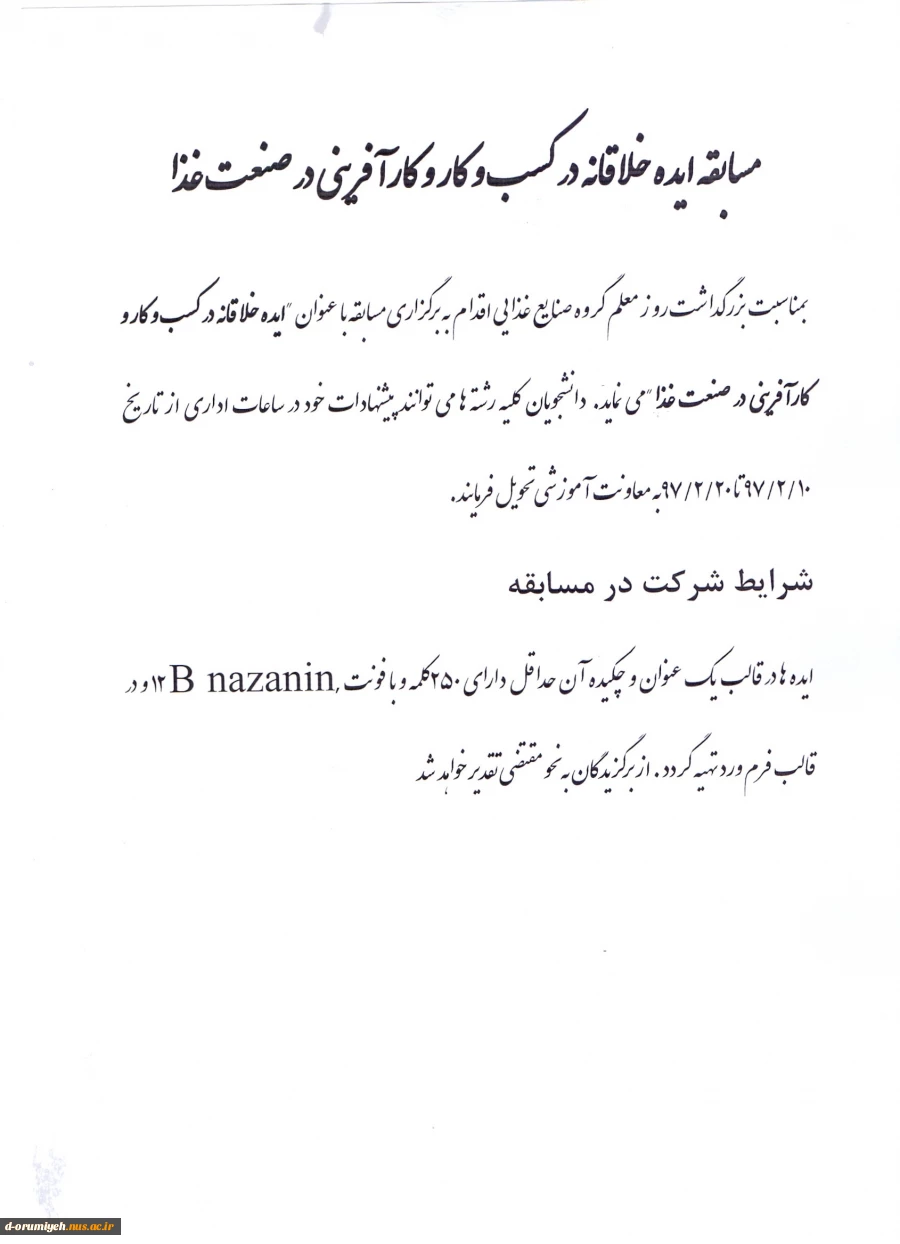 مسابقه ایده خلاقانه در کسب و کار و کارآفرینی در صنعت غذا
بمناسبت بزرگداشت روز معلم گروه صنایع غذایی اقدام به برگزاری مسابقه با عنوان "ایده خلاقانه در کسب و کار و
کارآفرینی در صنعت غذا" می نماید. دانشجویان کلیه رشته ها می توانند پیشنهادات خود در ساعات اداری از تاریخ
۹۷/۲/۱۰ تا ۹۷/۲/۲۰ به معاونت آموزشی تحویل فرمایند.
شرایط شرکت در مسابقه
ایده ها در قالب یک عنوان و چکیده آن حداقل دارای ۲۵۰ کلمه و با فونت B nazanin, ۱۲ و در
قالب فرم ورد تهیه گردد. از برگزیدگان به نحو مقتضی تقدیر خواهد شد
d-orumiyeh.nus.ac.ir